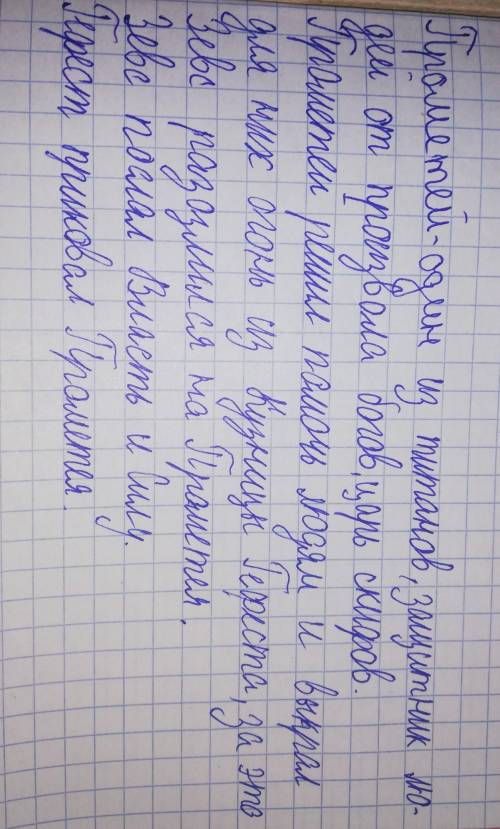 Прометей-один из титанов, защитник лю-
дей от произвола богов, царь скифов.
Прометей решил помочь людям и выкрал
для них огонь из кузницы Гефеста, за это
Зевс разозлился на Прометея.
Зевс послал Власть и Силу.
Гефест приковал Прометея.